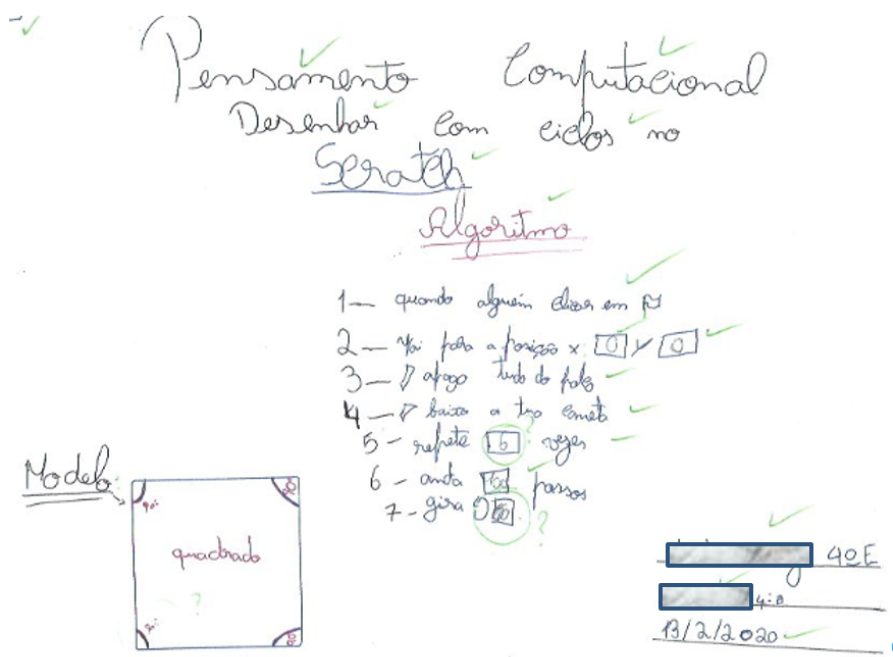 Pensamento Computacional
Desenhar com ciclos no
Scratch
Algoritmo
1— quando alguém clicar em
2— Vai para a posição x 0 y 0
3— apaga tudo do palco
4— baixa a tua caneta
5- repete 6 vezes
6- anda 100 passos
7- gira
Modelo
90º
quadrado
4ºE
4º
13/2/2020